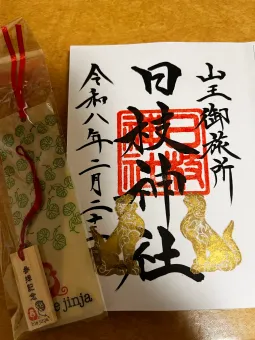 山王御旅所
日枝神社
令和八年二月二十
参拝記念
jinja